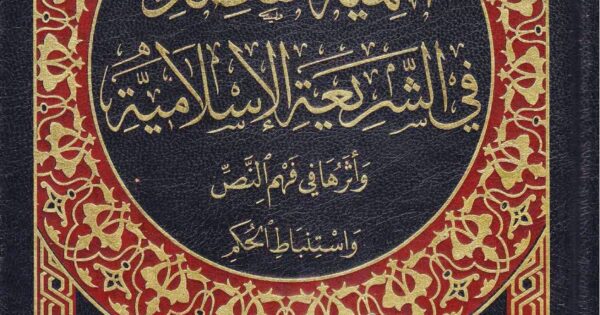 فِي الشَّرِيعَةِ الإِسْلَامِيَّةِ
وَأَثَرُهَا فِي فَهْمِ النَّصِّ
وَاسْتِنْبَاطِ الْحُكْمِ